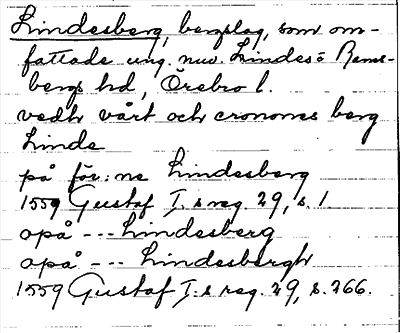 Lindesberg, bergslag, som om-
fattade ung. nuv. Lindes= Rams-
bergs hd, Örebro l.
vedh vårt och cronones berg
Linde
på för:ne Lindesberg
1559 Gustaf I.s reg. 29, s. 1
opå --- Lindesberg
opå --- Lindesbergh
1559 Gustaf I.s reg. 29, s. 266.